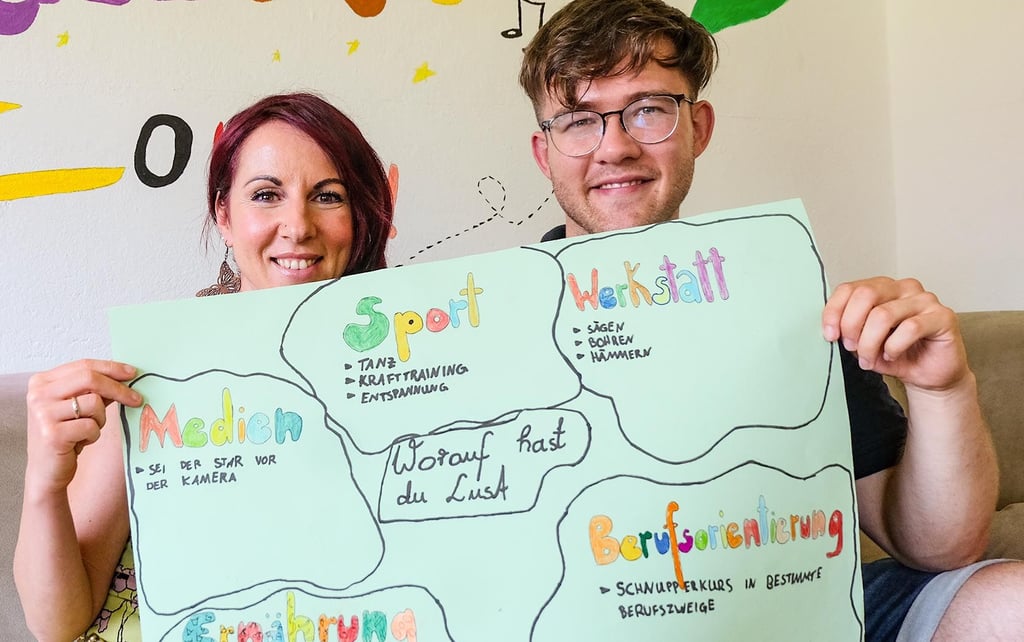 O
Sport
▻ TANZ
▻ KRAFTTRAINING
▻ ENTSPANNUNG
Werkstatt
▻ SÄGEN
▻ BOHREN
▻ HÄMMERN
Medien
▻ SEI DER STAR VOR
DER KAMERA
Worauf hast
du Lust
Berufsorientierung
▻ SCHNUPPERKURS IN BESTIMMTE
BERUFSZWEIGE
Ernährung